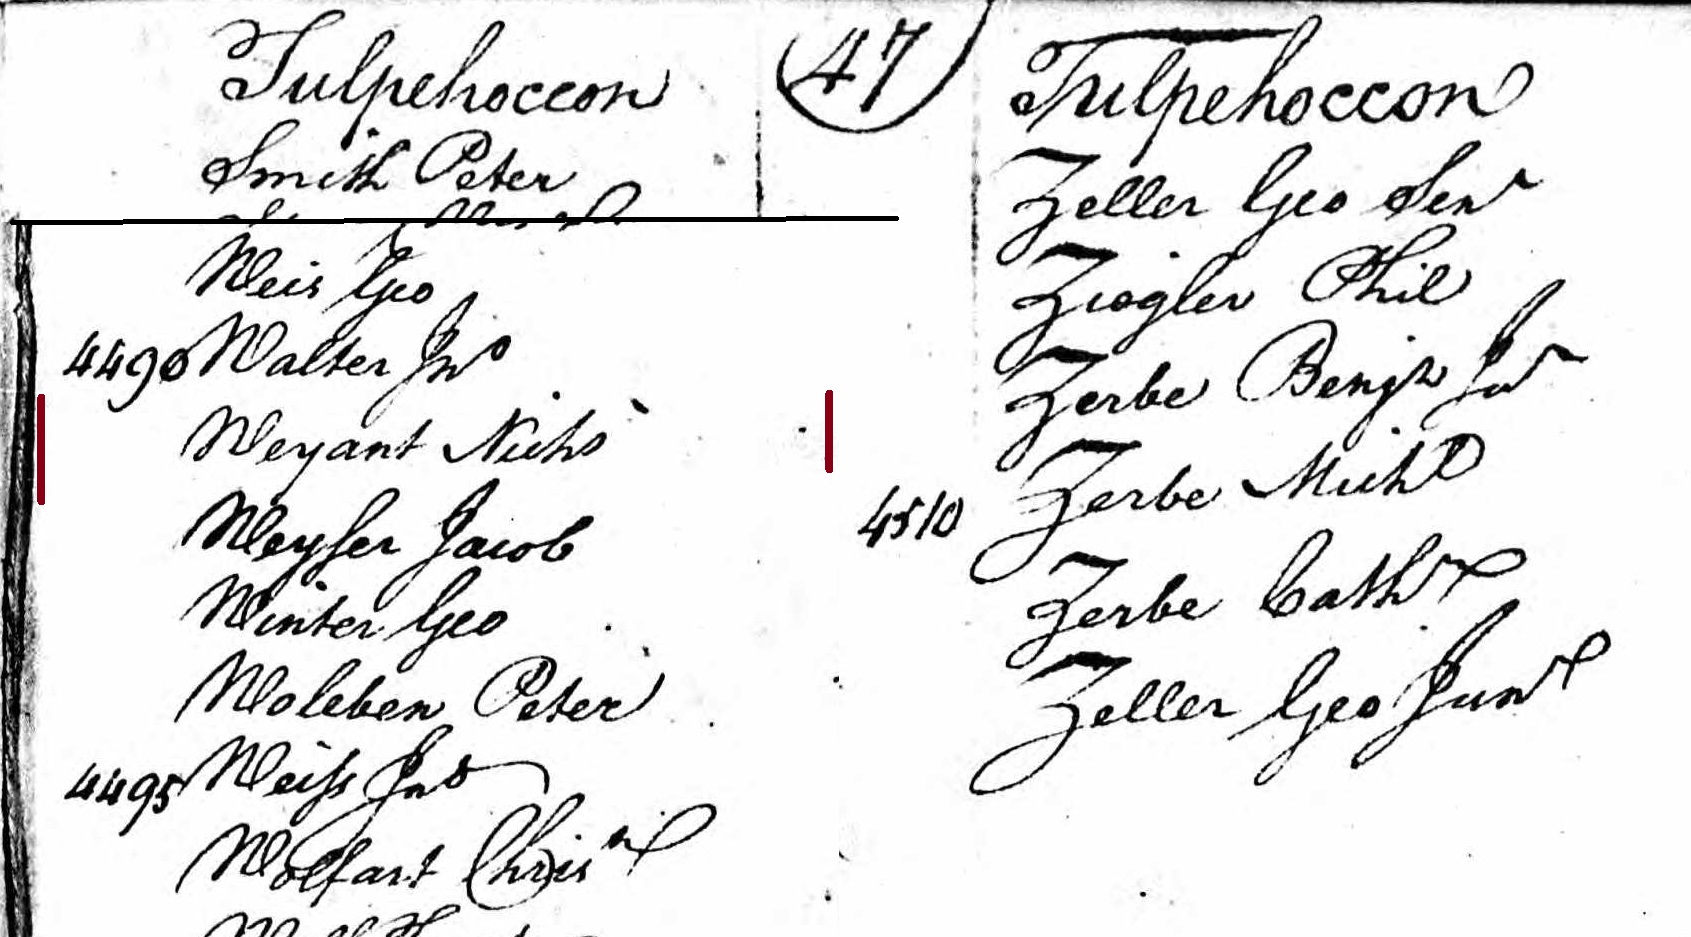 47
Tulpehoccon
Smith Peter
Weis Geo
4490 Walter Jno
Weyant Nichs
Weyser Jacob
Winter Geo
Woleben Peter
4495 Weiss Jno
Wolfart Chrisn
Tulpehoccon
Zeller Geo Senr
Ziegler Phil
Zerbe Benjn Jur
Zerbe Michl
4510
Zerbe Cathr
Zeller Geo Junr